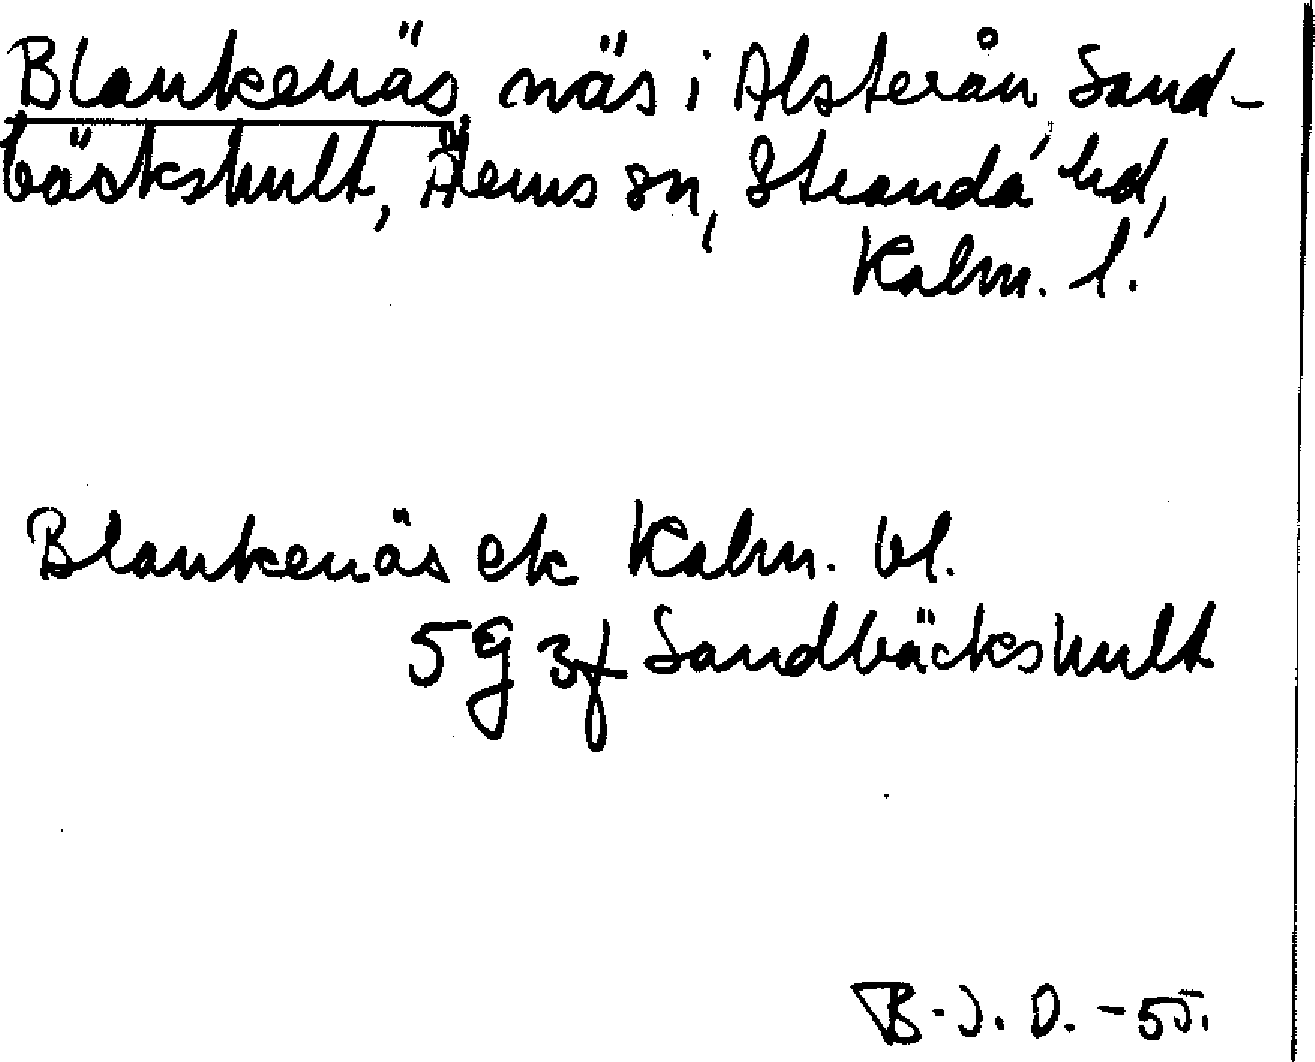 Blankenäs näs i Alsterån, Sand-
bäckshult, Ålems sn, Stranda hd,
Kalm. l.
Blankenäs ek Kalm. bl.
5 g 3 f Sandbäckshult
B-J. O. -55.